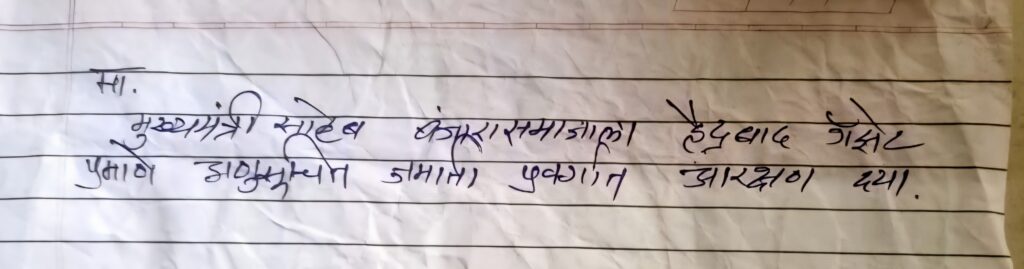 मा.
मुख्यमंत्री साहेब बंजारा समाजाला हैद्राबाद गॅझेट
प्रमाणे अनुसूचित जमाती प्रवर्गात आरक्षण दया.